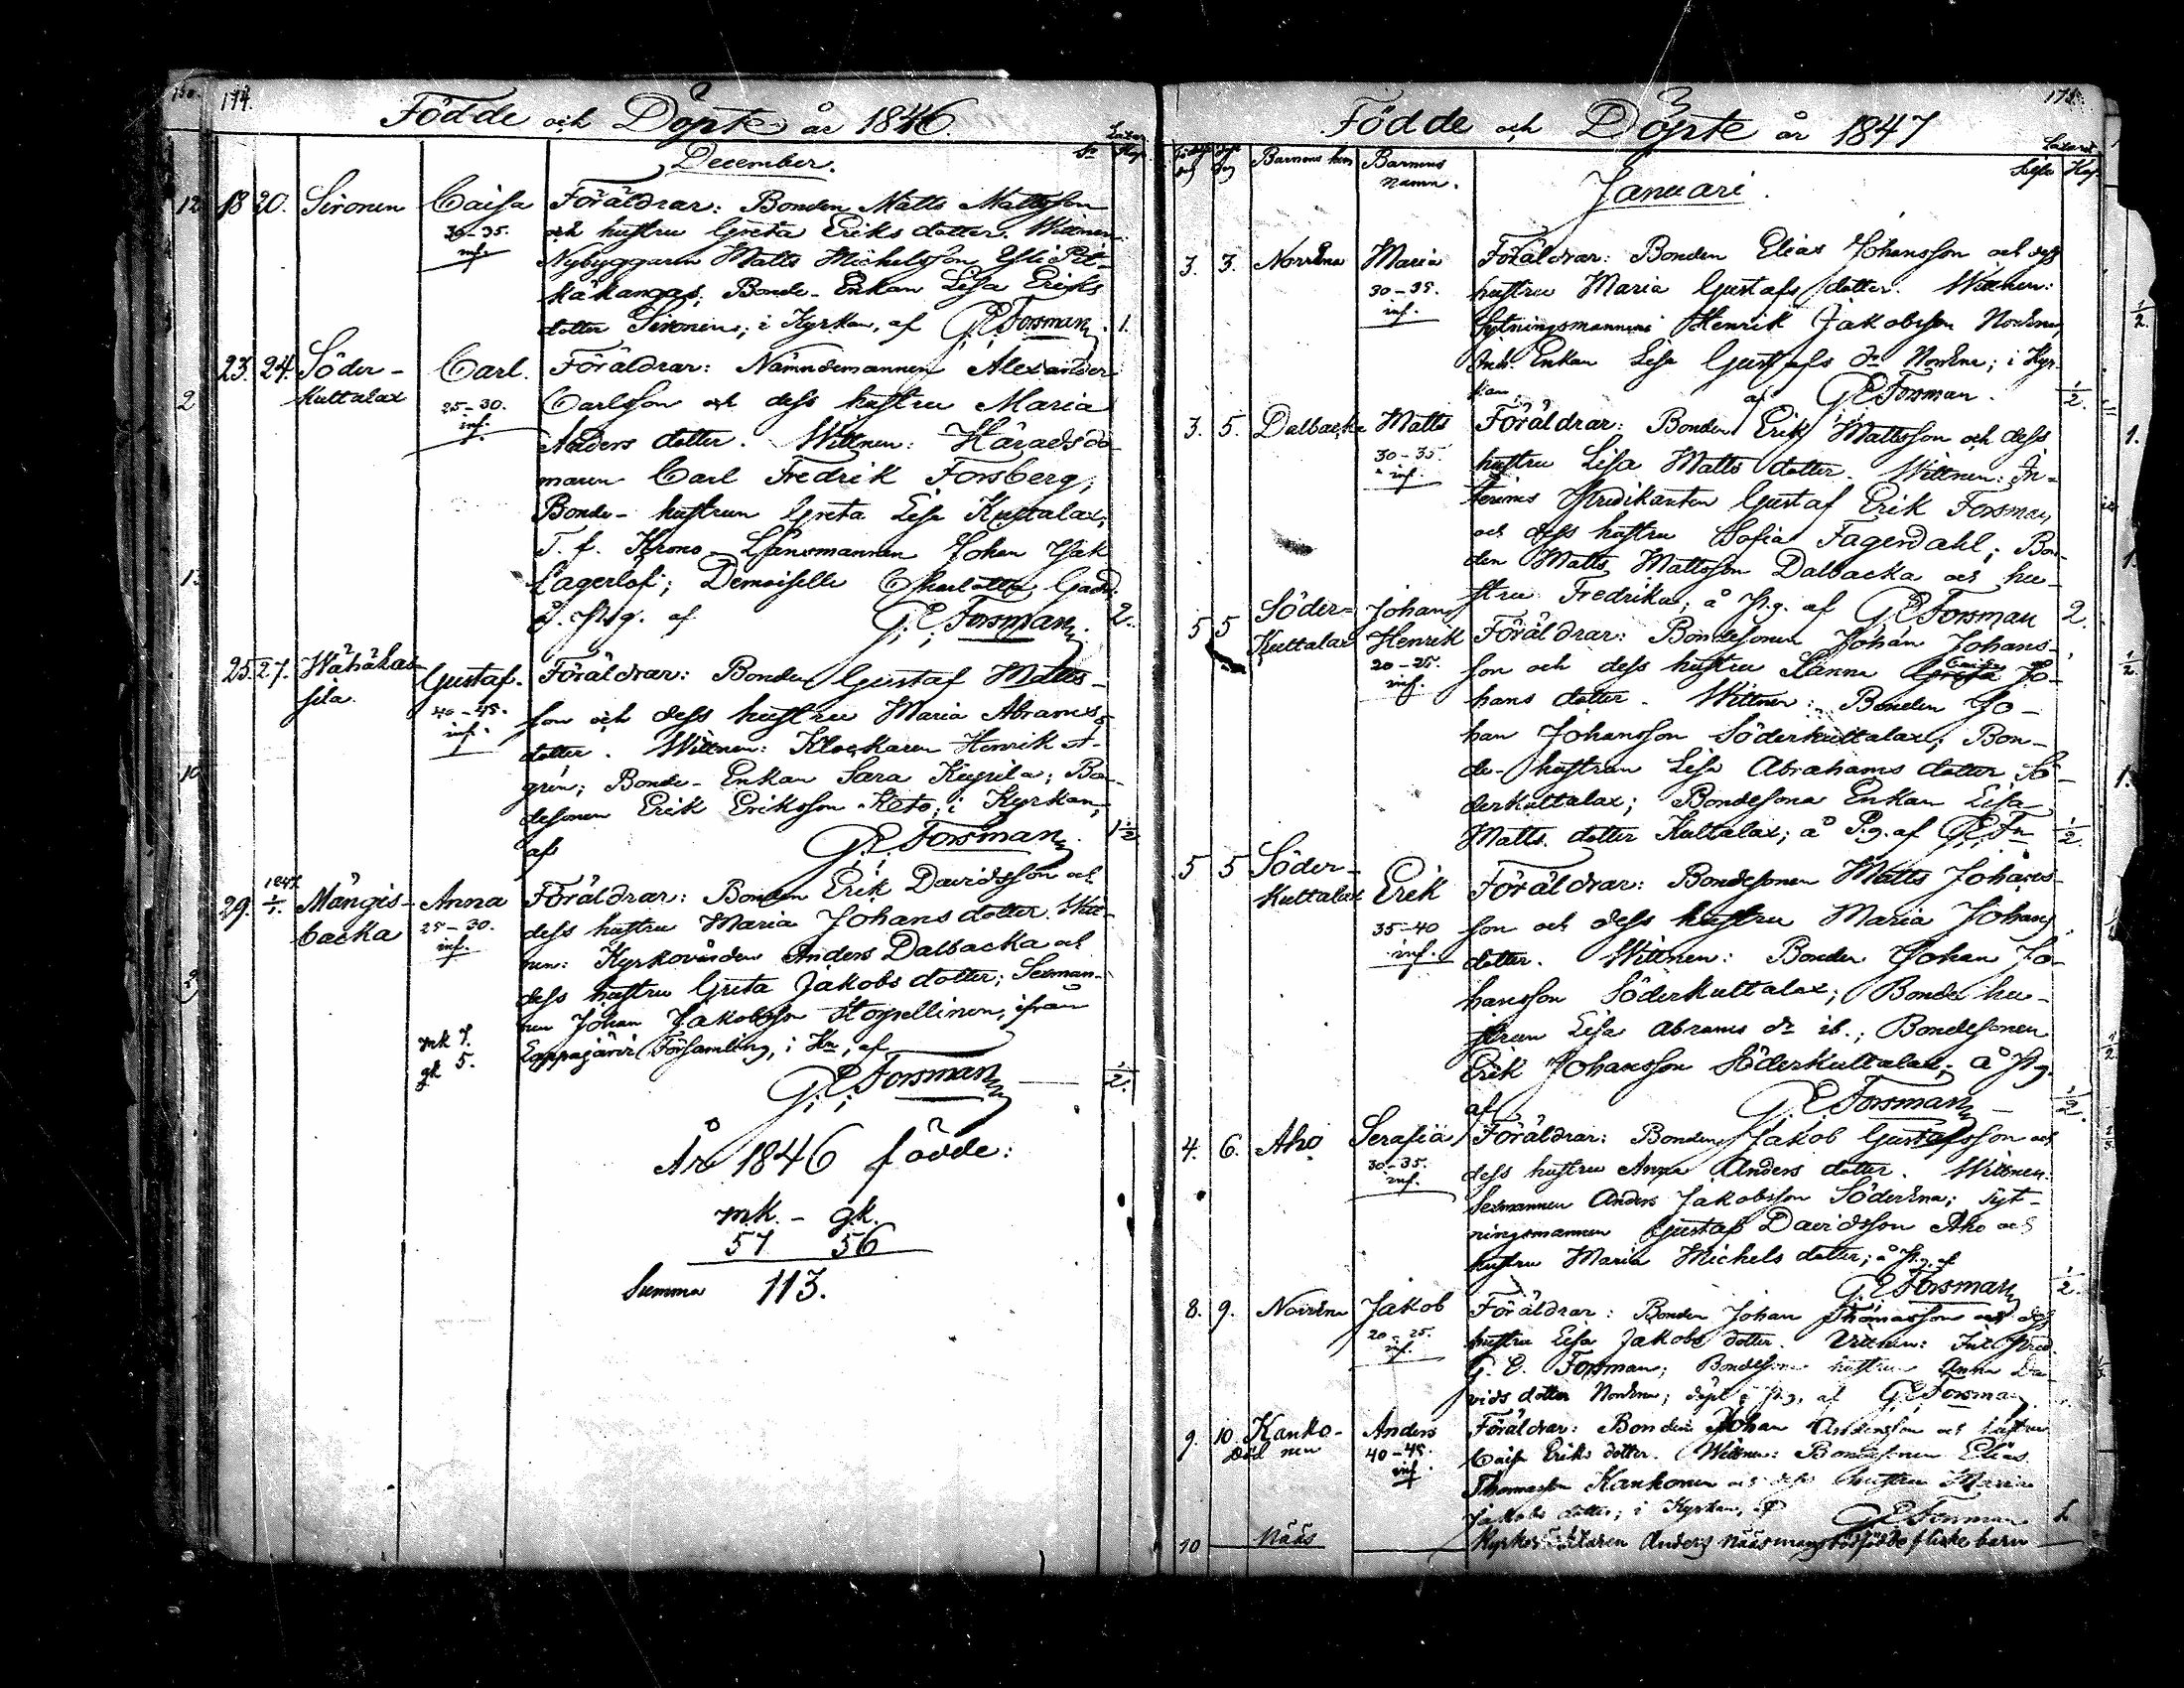 174.
Födde och Döpte år 1846
December.
18 20. Sironen Caisa Föräldrar: Bonden Matts Mattsson
30–35. och hustru Greta Eriks dotter. Wittnen:
inf. Nybyggaren Matts Michelsson
käkangas; Bonde-Enkan Lisa Eriks
dotter Sironens; i Kyrkan, af G. E. Forsman. 1.
23. 24. Söder- Carl. Föräldrar: Nämndemannen Alexander
Kuttalax 25–30. Carlsson och dess hustru Maria
inf. Anders dotter. Wittnen: Häradsdo-
maren Carl Fredrik Forsberg;
Bonde-hustrun Greta Lisa Kuttalax;
T. f. Krono-Länsmannen Johan Jak
Lagerlöf; Demoiselle Charlotta Gadd;
å P.g. af G. E. Forsman. 2.
25. 27. Wähäkai- Gustaf. Föräldrar: Bonden Gustaf Matts-
sila 40–45. son och dess hustru Maria Abrams
inf. dotter. Wittnen: Klockaren Henrik A-
grén; Bonde-Enkan Sara Kujula; Bon-
desonen Erik Eriksson Keto; i Kyrkan,
af G. E. Forsman. 1 1/2
29. 1847 1/1. Mångis- Anna Föräldrar: Bonden Erik Davidsson och
backa 25–30. dess hustru Maria Johans dotter. Witt-
inf. nen: Kyrkovärden Anders Dalbacka och
dess hustru Greta Jakobs dotter; Sexman-
nen Johan Jakobsson Hoppellinen, ifrån
mk 7. Lappajärvi Församling, i Kn, af
gk 5. G. E. Forsman 1/2.
År 1846 födde:
mk. – gk.
57 56
Summa 113.
175.
Födde och Döpte år 1847
Barnens hem Barnens
namn.
Januari.
3. 3. Norrena Maria Föräldrar: Bonden Elias Johansson och dess
30–35. hustru Maria Gustafs dotter. Wittnen:
inf. Sytningsmannen Henrik Jakobsson Norrena
Enkan Lisa Gustafs dr Norrena; i Kyr-
kan af G. E. Forsman. 1/2.
3. 5. Dalbacka Matts Föräldrar: Bonden Erik Mattsson och dess
30–35. hustru Lisa Matts dotter. Wittnen: In-
inf. terims Predikanten Gustaf Erik Forsman,
och dess hustru Sofia Fagerdahl; Bon-
den Matts Mattsson Dalbacka och hu-
stru Fredrika; å P.g. af G. E. Forsman 2.
5 5 Söder- Johan Föräldrar: Bondesonen Johan Johans-
Kuttalax Henrik son och dess hustru Sanna Greta Caisa Jo-
20–25. hans dotter. Wittnen: Bonden Jo-
inf. han Johansson Söderkuttalax; Bon-
de-hustrun Lisa Abrahams dotter Sö-
derkuttalax; Bondesons Enkan Lisa
Matts dotter Kuttalax; å P.g. af G. E. Fn 1/2
5 5 Söder- Erik Föräldrar: Bondesonen Matts Johans-
Kuttalax 35–40 son och dess hustru Maria Johans
inf. dotter. Wittnen: Bonden Johan Jo-
hansson Söderkuttalax; Bonde hu-
strun Lisa Abrams dr ib.; Bondesonen
Erik Johansson Söderkuttalax; å P.g.
af G. E. Forsman 1/2.
4. 6. Aho Serafia Föräldrar: Bonden Jakob Gustafsson och
30–35. dess hustru Anna Anders dotter. Wittnen:
inf. Sexmannen Anders Jakobsson Söderena; syt-
ningsmannen Gustaf Davidsson Aho och
hustru Maria Michels dotter; å P.g. af
G. E. Forsman 1/2.
8. 9. Norrena Jakob Föräldrar: Bonden Johan Thomasson och dess
20–25. hustru Lisa Jakobs dotter. Wittnen: Int. Pred.
inf. G. E. Forsman; Bondesons hustrun Anna Da-
vids dotter Norrena; döpt å P.g. af G. E. Forsman
9. 10 Kanko- Anders Föräldrar: Bonden Johan Andersson och hustru
Död nen 40–45. Caisa Eriks dotter. Wittnen: Bondesonen Elias
inf. Thomasson Kankonen och dess hustru Maria
Jakobs dotter; i Kyrkan, af G. E. Forsman 1.
10 Nääs Anders Nääsmans dödfödde flicke barn